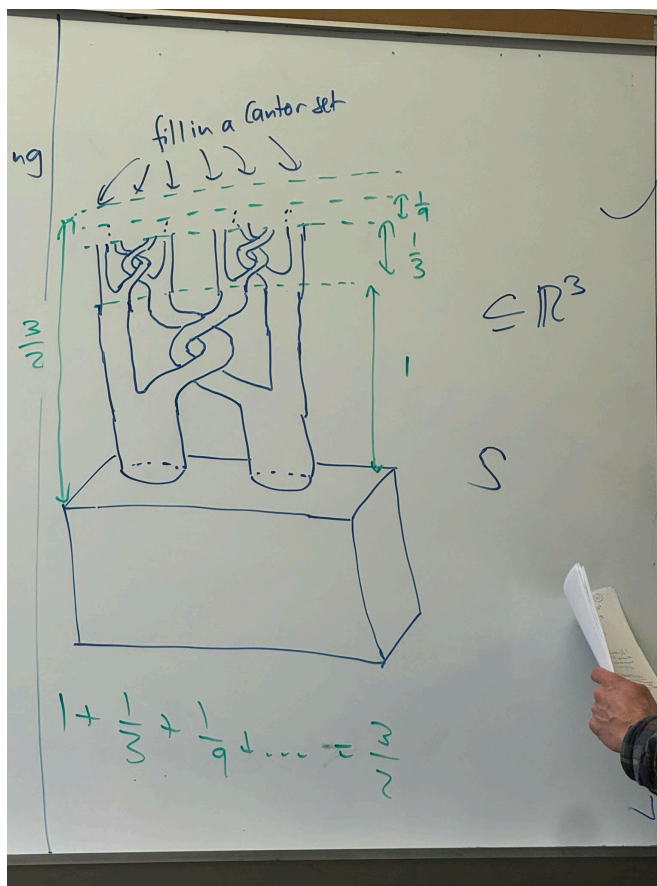 fill in a Cantor set
ng
1/9
1/3
3/2
⊆ ℝ³
1
S
1 + 1/3 + 1/9 + .... = 3/2